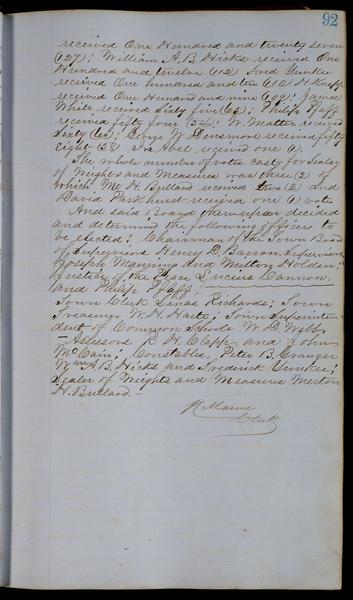 92
received One Hundred and twenty seven
(127); William A. B. Hicks received One
Hundred and twelve (112) Fred Junker
received One hundred and ten (110) H Knapp
received One Hundred and nine (109); James
White received Sixty five (65); Philip Pfaff
received fifty four (54); W. Mattice received
Sixty (60); George W Densmore received fifty
Eight (58) Ira Abel received one (1).
The whole number of votes cast for Sealer
of Weights and Measures was three (3) of
which M. H. Bullard received two (2) and
David Parkhurst received one (1) vote
And said Board thereupon decided
and determined the following officers to
be elected; Chairman of the Town Board
of Supervisors Henry D. Barron, Supervisors
Joseph Manning and Milton Holden;
Justices of the Peace Lucius Cannon
and Philip Pfaff;
Town Clerk Linas Richards; Town
Treasurer W. H. Haste; Town Superinten-
dent of Common Schools W. D. Webb,
Assessors R. H. Clapp and John
McCain; Constables, Peter B. Granger
Wm A. B. Hicks and Frederick Junker;
Sealer of Weights and Measures Merton
H. Bullard. —
Clerk